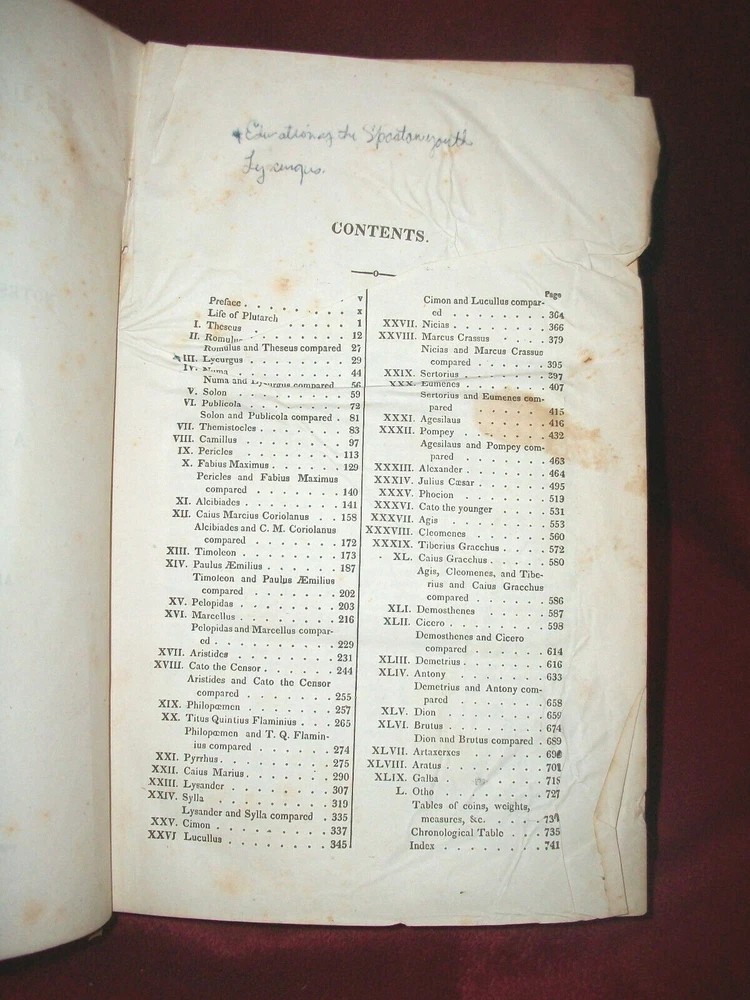 Education of the Spartan youth
Lycurgus.
CONTENTS.
Preface . . . . . . . . v
Life of Plutarch . . . . . x
I. Theseus . . . . . . 1
II. Romulus . . . . . . 12
Romulus and Theseus compared 27
III. Lycurgus . . . . . . 29
IV. Numa . . . . . . 44
Numa and Lycurgus compared 56
V. Solon . . . . . . 59
VI. Publicola . . . . . . 72
Solon and Publicola compared . 81
VII. Themistocles . . . . . . 83
VIII. Camillus . . . . . . 97
IX. Pericles . . . . . . 113
X. Fabius Maximus . . . . . . 129
Pericles and Fabius Maximus
compared . . . . . . 140
XI. Alcibiades . . . . . . 141
XII. Caius Marcius Coriolanus . . 158
Alcibiades and C. M. Coriolanus
compared . . . . . . 172
XIII. Timoleon . . . . . . 173
XIV. Paulus Æmilius . . . . . . 187
Timoleon and Paulus Æmilius
compared . . . . . . 202
XV. Pelopidas . . . . . . 203
XVI. Marcellus . . . . . . 216
Pelopidas and Marcellus compar-
ed . . . . . . 229
XVII. Aristides . . . . . . 231
XVIII. Cato the Censor . . . . . . 244
Aristides and Cato the Censor
compared . . . . . . 255
XIX. Philopœmen . . . . . . 257
XX. Titus Quintius Flaminius . . . 265
Philopœmen and T. Q. Flamin-
ius compared . . . . . . 274
XXI. Pyrrhus . . . . . . 275
XXII. Caius Marius . . . . . . 290
XXIII. Lysander . . . . . . 307
XXIV. Sylla . . . . . . 319
Lysander and Sylla compared . 335
XXV. Cimon . . . . . . 337
XXVI Lucullus . . . . . . 345
Page
Cimon and Lucullus compar-
ed . . . . . . 364
XXVII. Nicias . . . . . . 366
XXVIII. Marcus Crassus . . . . 379
Nicias and Marcus Crassus
compared . . . . . . 395
XXIX. Sertorius . . . . . . 397
XXX. Eumenes . . . . . . 407
Sertorius and Eumenes com-
pared . . . . . . 415
XXXI. Agesilaus . . . . . . 416
XXXII. Pompey . . . . . . 432
Agesilaus and Pompey com-
pared . . . . . . 463
XXXIII. Alexander . . . . . . 464
XXXIV. Julius Cæsar . . . . . . 495
XXXV. Phocion . . . . . . 519
XXXVI. Cato the younger . . . . 531
XXXVII. Agis . . . . . . 553
XXXVIII. Cleomenes . . . . . . 560
XXXIX. Tiberius Gracchus . . . . 572
XL. Caius Gracchus . . . . . 580
Agis, Cleomenes, and Tibe-
rius and Caius Gracchus
compared . . . . . . 586
XLI. Demosthenes . . . . . . 587
XLII. Cicero . . . . . . 598
Demosthenes and Cicero
compared . . . . . . 614
XLIII. Demetrius . . . . . . 616
XLIV. Antony . . . . . . 633
Demetrius and Antony com-
pared . . . . . . 658
XLV. Dion . . . . . . 659
XLVI. Brutus . . . . . . 674
Dion and Brutus compared . 689
XLVII. Artaxerxes . . . . . . 690
XLVIII. Aratus . . . . . . 701
XLIX. Galba . . . . . . 718
L. Otho . . . . . . 727
Tables of coins, weights,
measures, &c. . . . . 734
Chronological Table . . . 735
Index . . . . . . 741